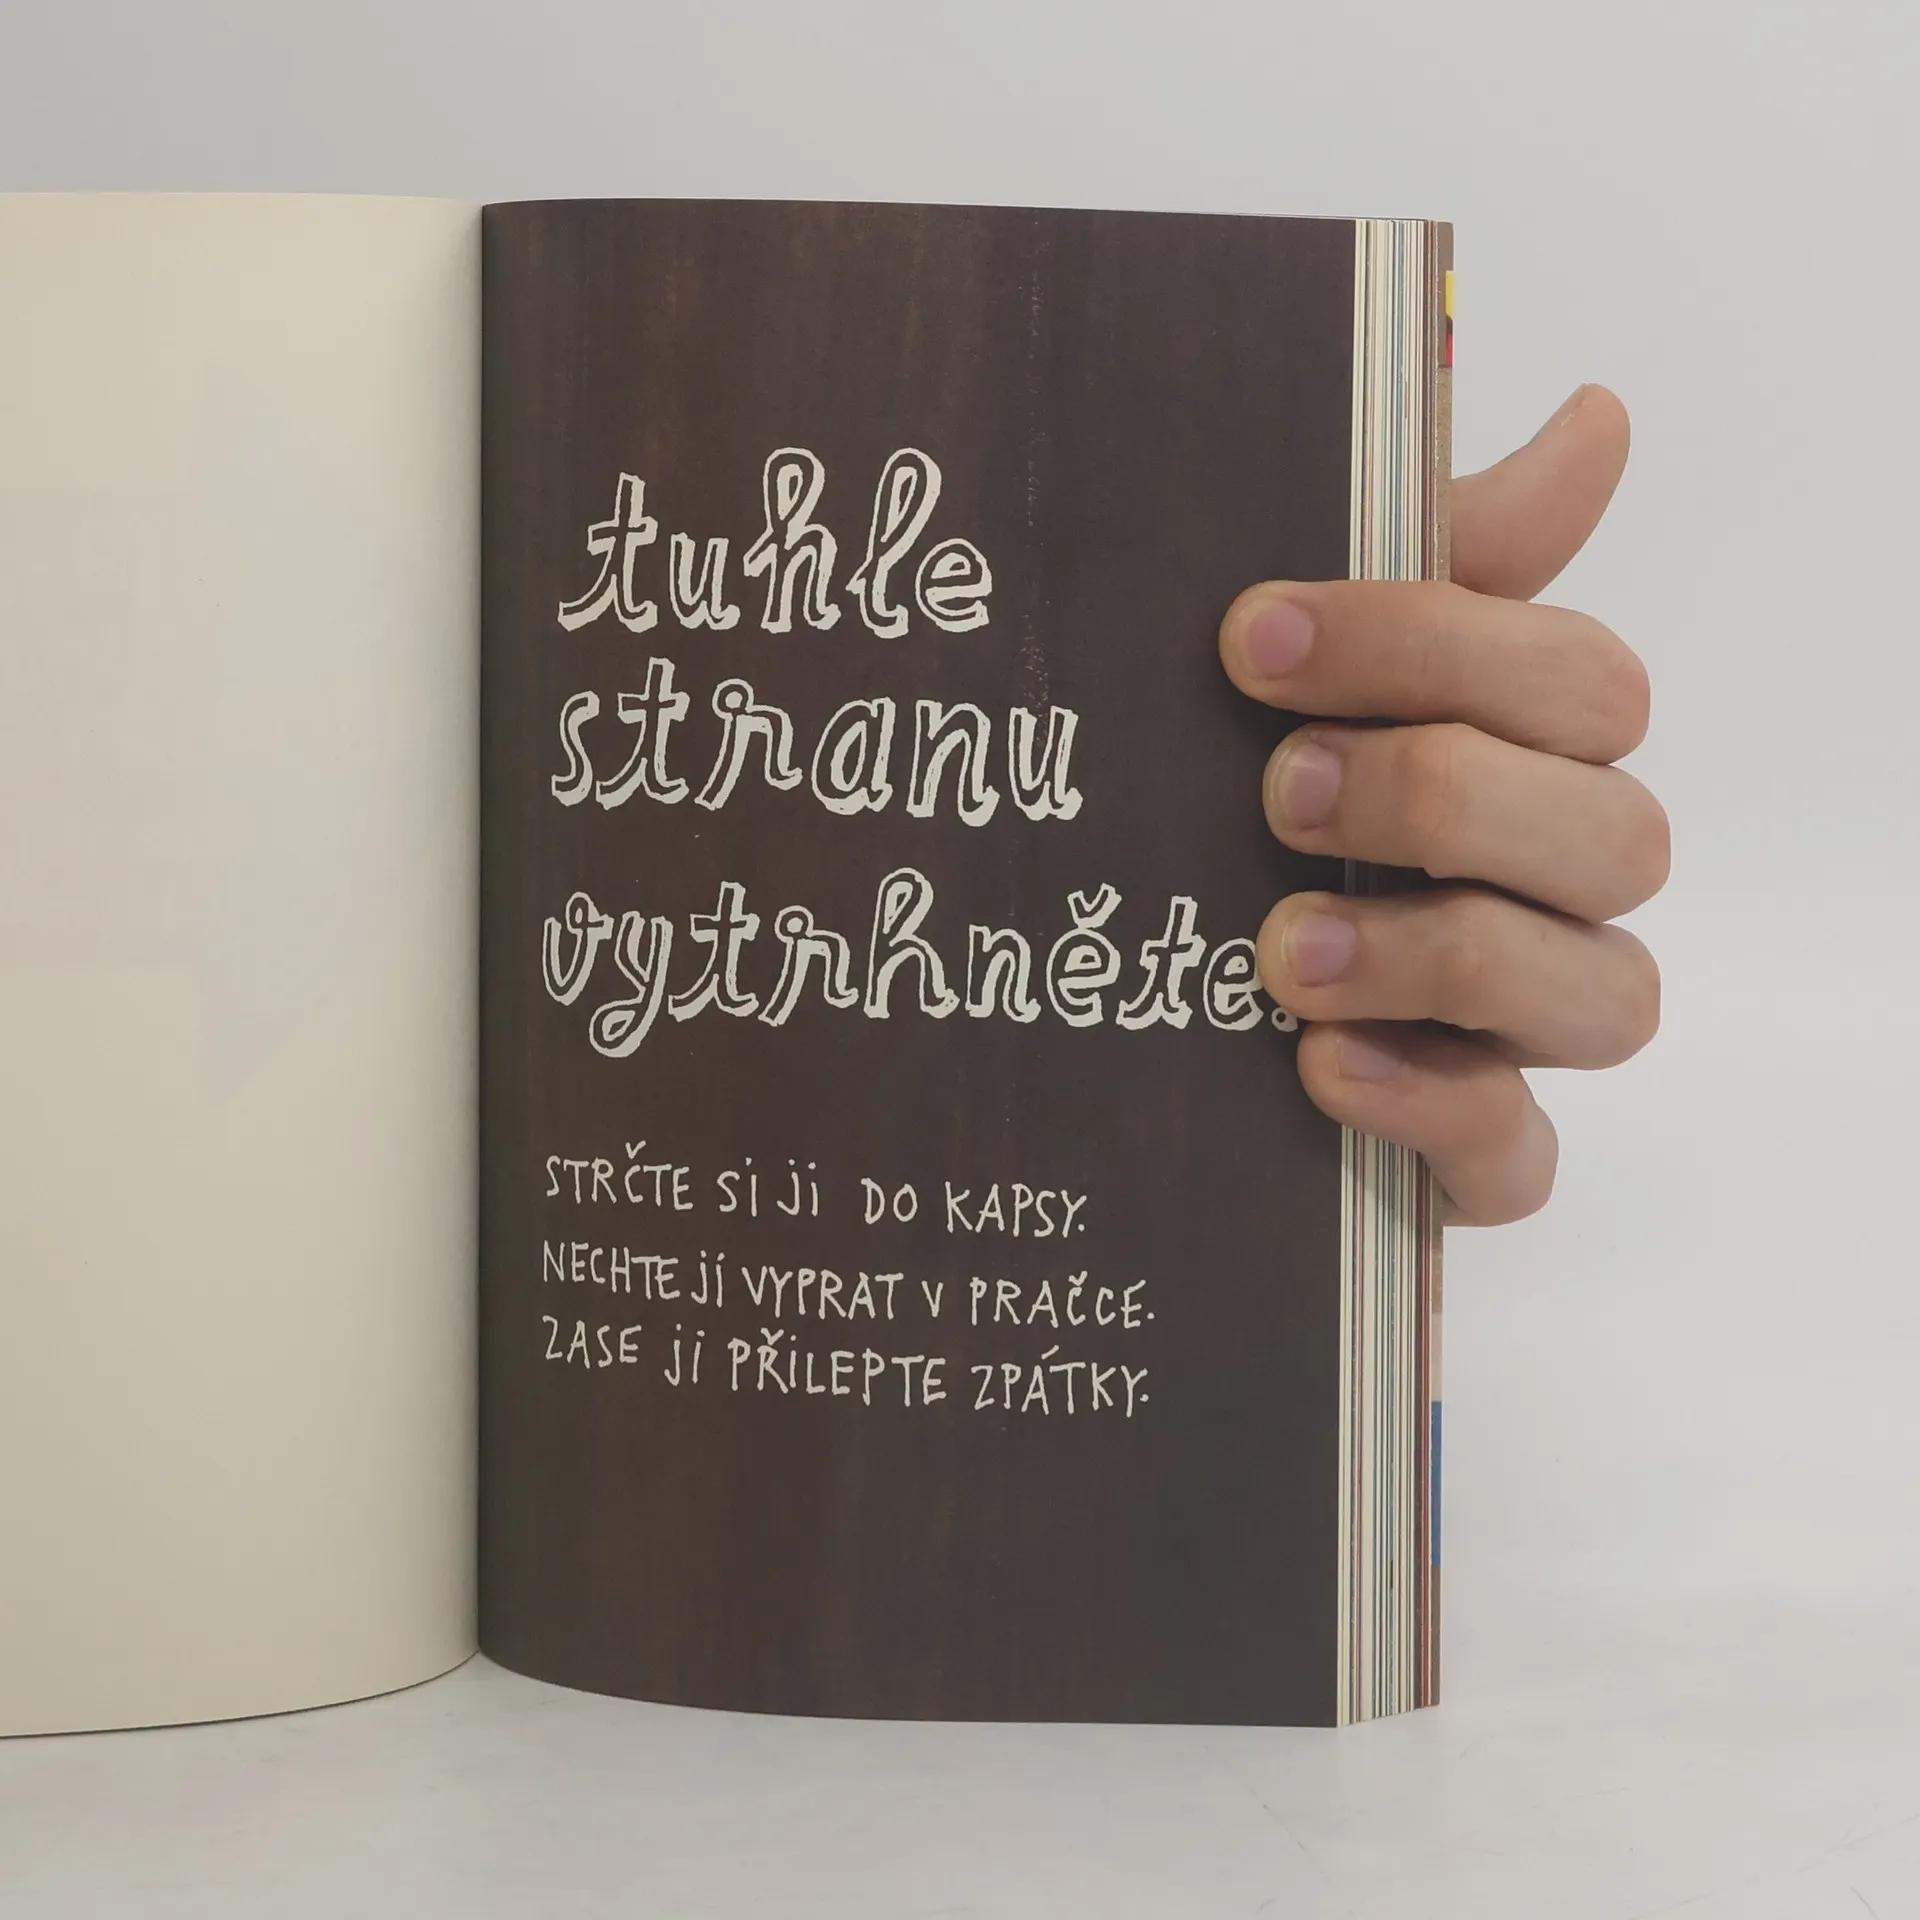 tuhle
stranu
vytrhněte.
STRČTE Si ji DO KAPSY.
NECHTE jí VYPRAT V PRAČCE.
ZASE ji PŘiLEPTE ZPÁTKY.